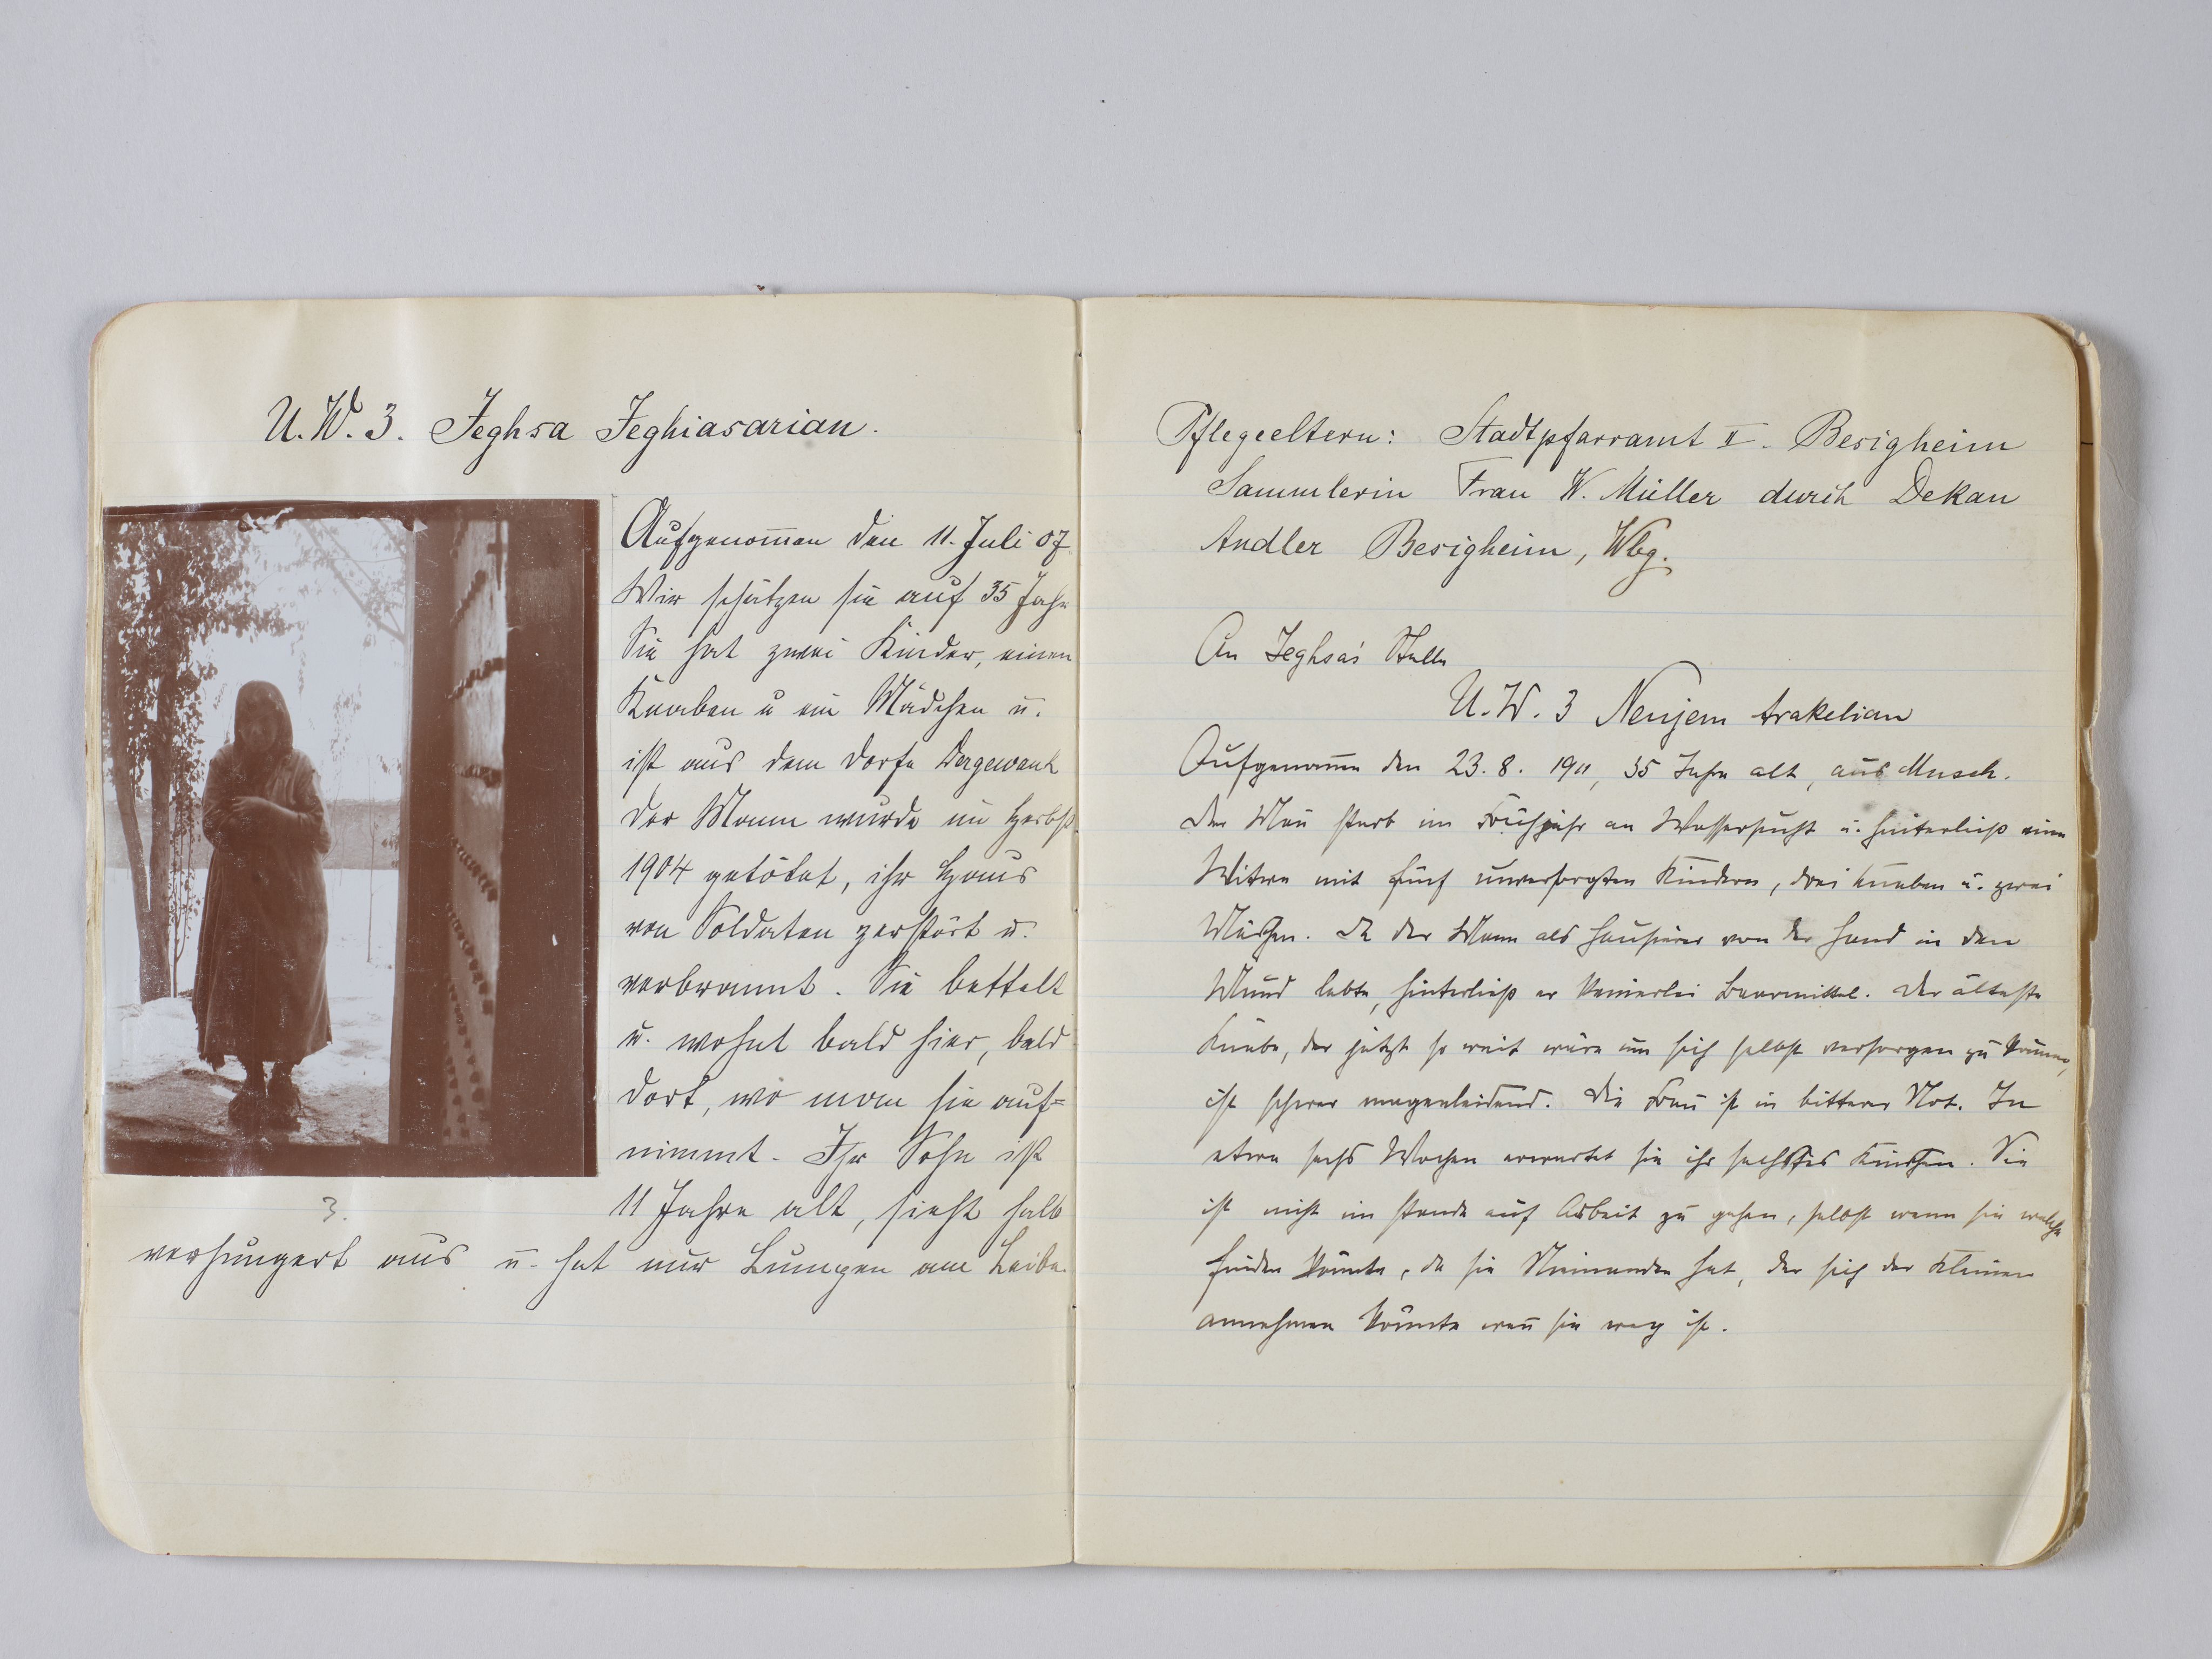 U. W. 3. Jeghsa Jeghiasarian.
Aufgenom̄en den 11. Juli 07.
Wir schätzen sie auf 35 Jahr
Sie hat zwei Kinder, einen
Knaben u ein Mädchen u.
ist aus dem Dorfe Dergewank
Der Mann wurde im Herbst
1904 getötet, ihr Haus
von Soldaten zerstört u.
verbrannt. Sie bettelt
u. wohnt bald hier, bald
dort, wo man sie auf=
nimmt. Ihr Sohn ist
11 Jahre alt, sieht halb
3.
verhungert aus u. hat nur Lumpen am Leibe.
Pflegeeltern: Stadtpfarramt II. Besigheim
Sammlerin Frau W. Müller durch Dekan
Andler Besigheim, Wbg.
An Jeghsa's Stelle
U. W. 3 Nenjem Arakelian
Aufgenom̄en den 23. 8. 1911, 35 Jahre alt, aus Musch.
Der Man̄ starb im Frühjahr an Wassersucht u. hinterließ eine
Witwe mit fünf unversorgten Kindern, drei Knaben u. zwei
Mädchen. Da der Mann als Hausierer von der Hand in den
Mund lebte, hinterließ er keinerlei Barmittel. Der älteste
Knabe, der jetzt so weit wäre um sich selbst versorgen zu können,
ist schwer magenleidend. Die Frau ist in bitterer Not. In
etwa sechs Wochen erwartet sie ihr sechstes Kindchen. Sie
ist nicht im stande auf Arbeit zu gehen, selbst wenn sie welche
finden könnte, da sie Niemanden hat, der sich der Kleinen
annehmen könnte wen̄ sie weg ist.